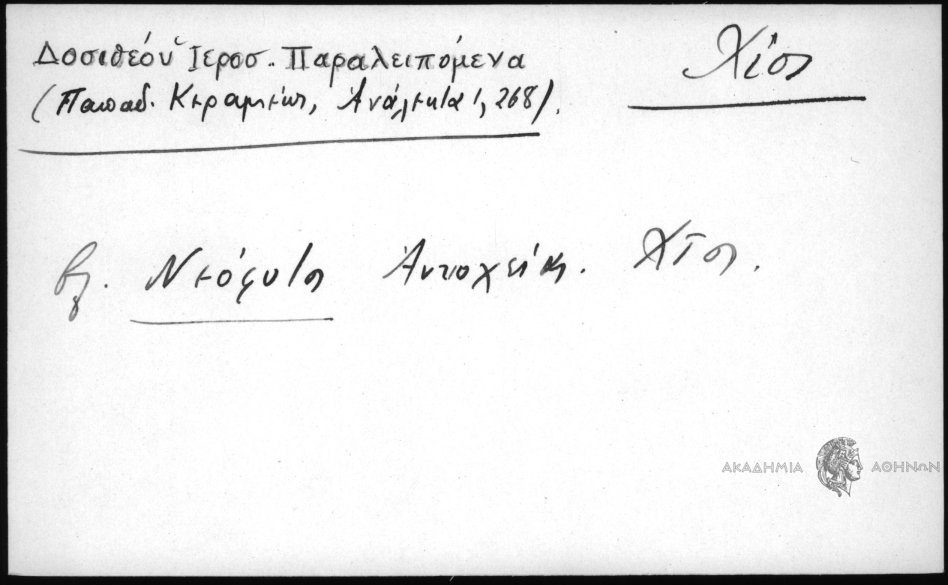 Δοσιθέου Ιεροσ. Παραλειπόμενα
Χίος
(Παπαδ. Κεραμεύς, Ἀνάλεκτα 1, 268).
βλ. Νεόφυτος Ἀντιοχείας. Χῖος.
ΑΚΑΔΗΜΙΑ ΑΘΗΝΩΝ